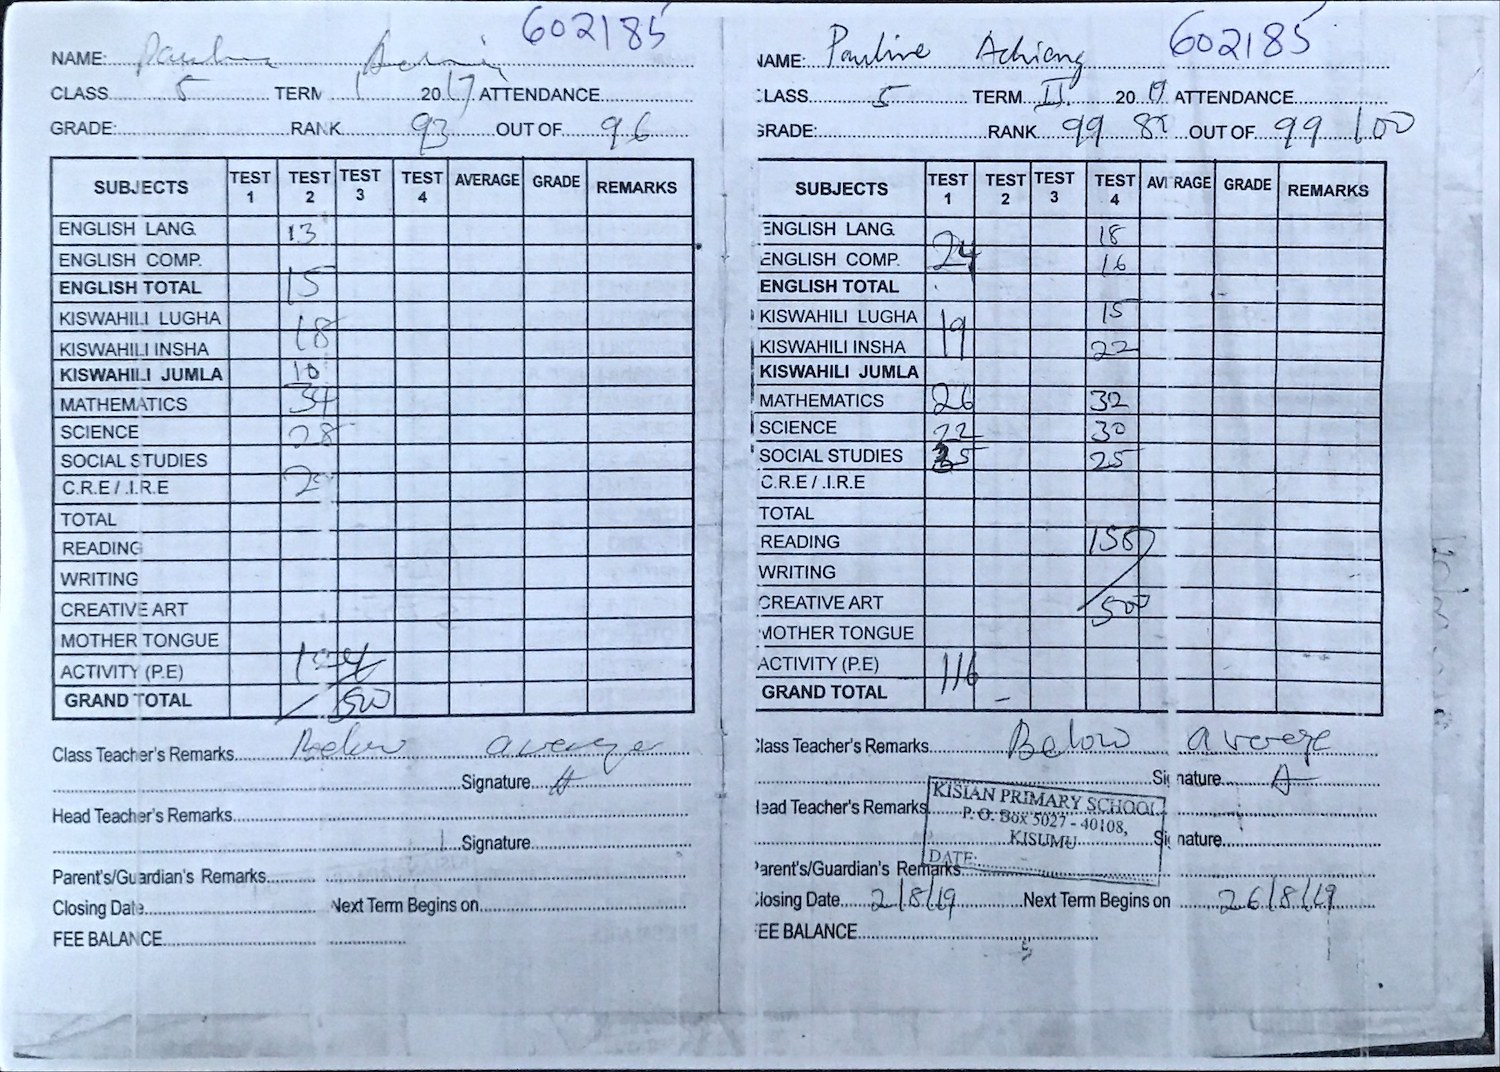 602185
NAME:
CLASS 5 TERM 1 2017 ATTENDANCE
GRADE: RANK 93 OUT OF 96
SUBJECTS TEST 1 TEST 2 TEST 3 TEST 4 AVERAGE GRADE REMARKS
ENGLISH LANG. 13
ENGLISH COMP.
ENGLISH TOTAL 15
KISWAHILI LUGHA
KISWAHILI INSHA 18
KISWAHILI JUMLA 10
MATHEMATICS 34
SCIENCE 28
SOCIAL STUDIES
C.R.E / .I.R.E
TOTAL
READING
WRITING
CREATIVE ART
MOTHER TONGUE
ACTIVITY (P.E)
GRAND TOTAL 500
Class Teacher's Remarks Below average
Signature
Head Teacher's Remarks
Signature
Parent's/Guardian's Remarks
Closing Date Next Term Begins on
FEE BALANCE
602185
NAME: Pauline Achieng
CLASS 5 TERM II 2019 ATTENDANCE
GRADE: RANK 99 OUT OF 99 100
SUBJECTS TEST 1 TEST 2 TEST 3 TEST 4 AVERAGE GRADE REMARKS
ENGLISH LANG. 18
ENGLISH COMP. 24 16
ENGLISH TOTAL
KISWAHILI LUGHA 19 15
KISWAHILI INSHA 22
KISWAHILI JUMLA
MATHEMATICS 26 32
SCIENCE 22 30
SOCIAL STUDIES 25 25
C.R.E / .I.R.E
TOTAL
READING 158
WRITING
CREATIVE ART 500
MOTHER TONGUE
ACTIVITY (P.E) 116
GRAND TOTAL
Class Teacher's Remarks Below average
Signature
Head Teacher's Remarks
KISIAN PRIMARY SCHOOL
P. O. Box 5027 - 40108,
KISUMU
DATE:
Signature
Parent's/Guardian's Remarks
Closing Date 2/8/19 Next Term Begins on 26/8/19
FEE BALANCE